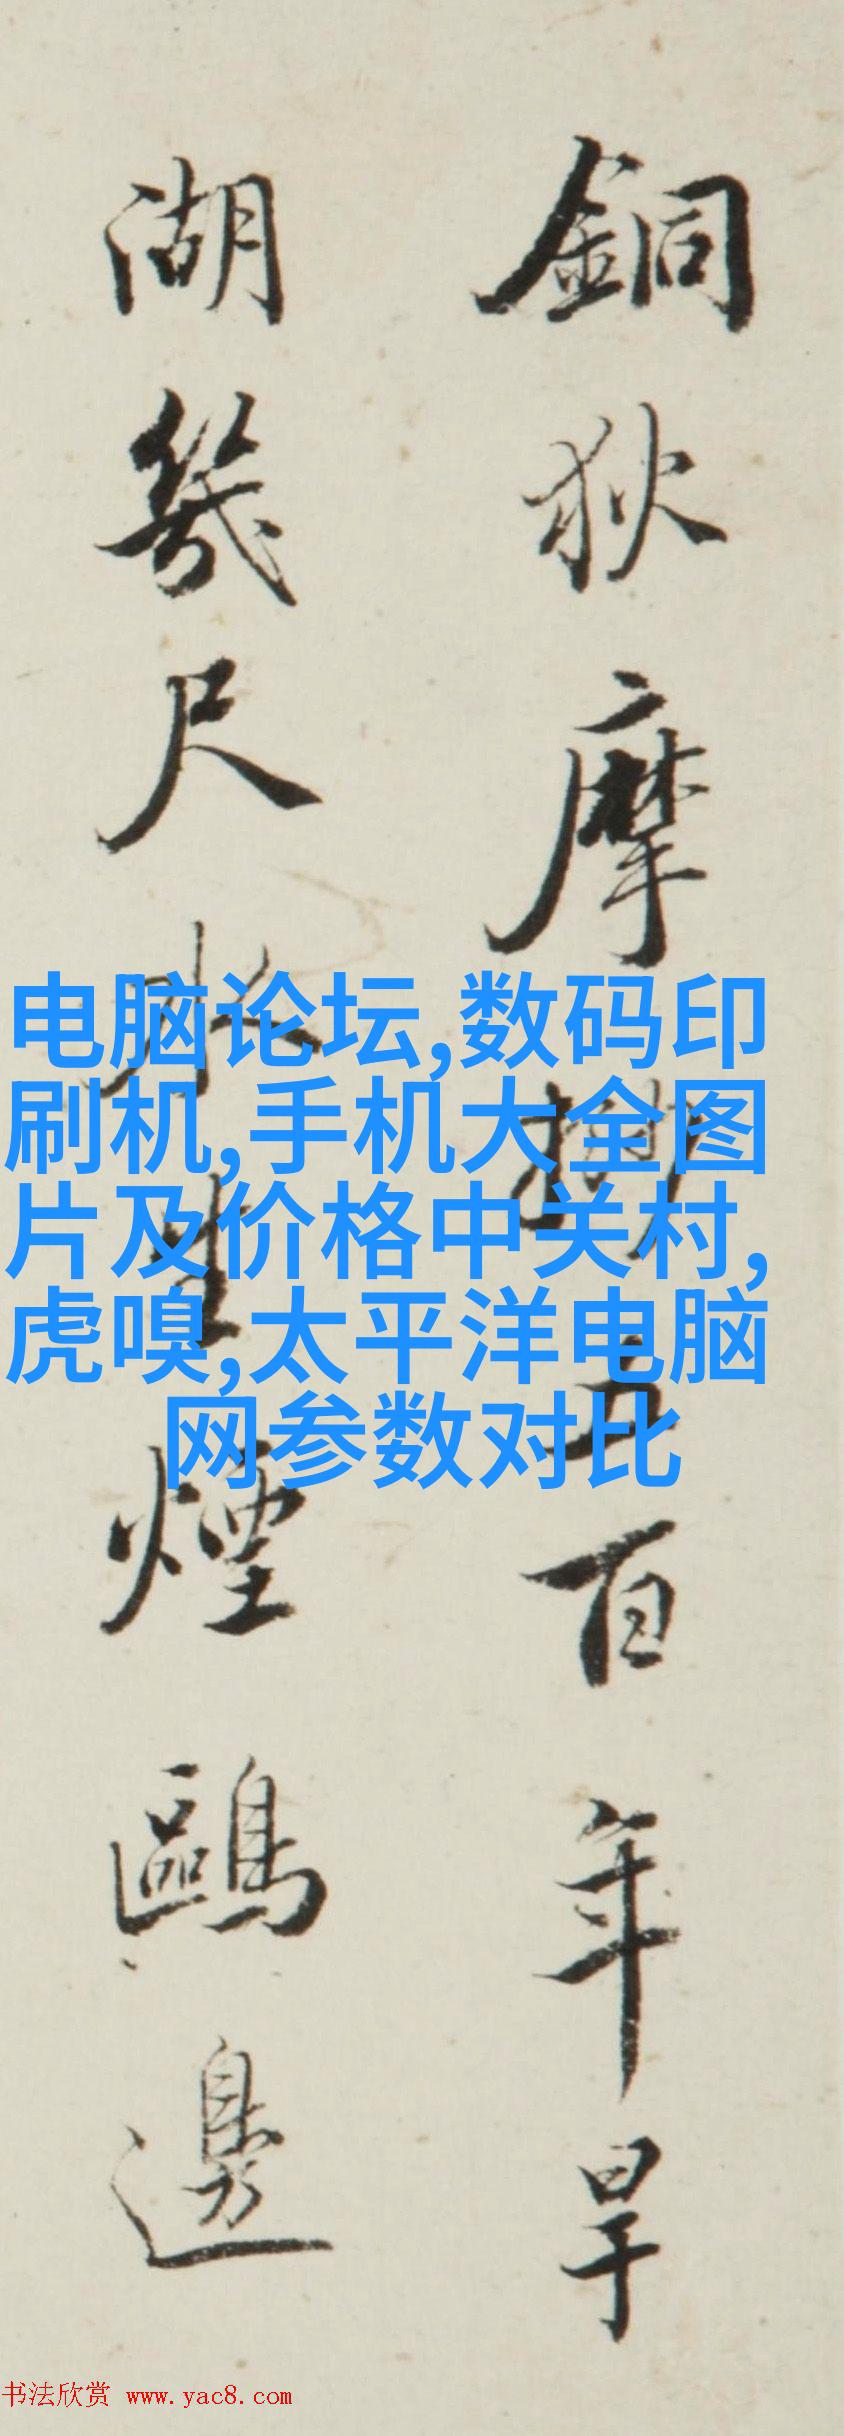 銅狄摩挲五百年旱
湖幾尺水生煙鷗邊
电脑论坛,数码印
刷机,手机大全图
片及价格中关村,
虎嗅,太平洋电脑
网参数对比
书法欣赏 www.yac8.com